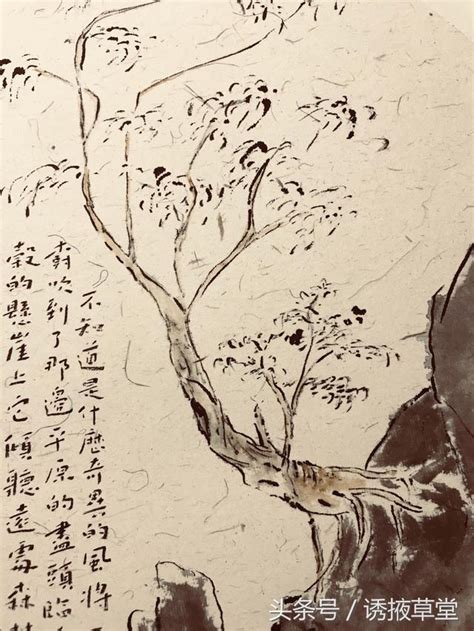 不知道是什麽奇異的風將一
樹吹到了那邊平原的盡頭臨
穀的懸崖上它傾聽遠處森林
头条号 / 诱掖草堂